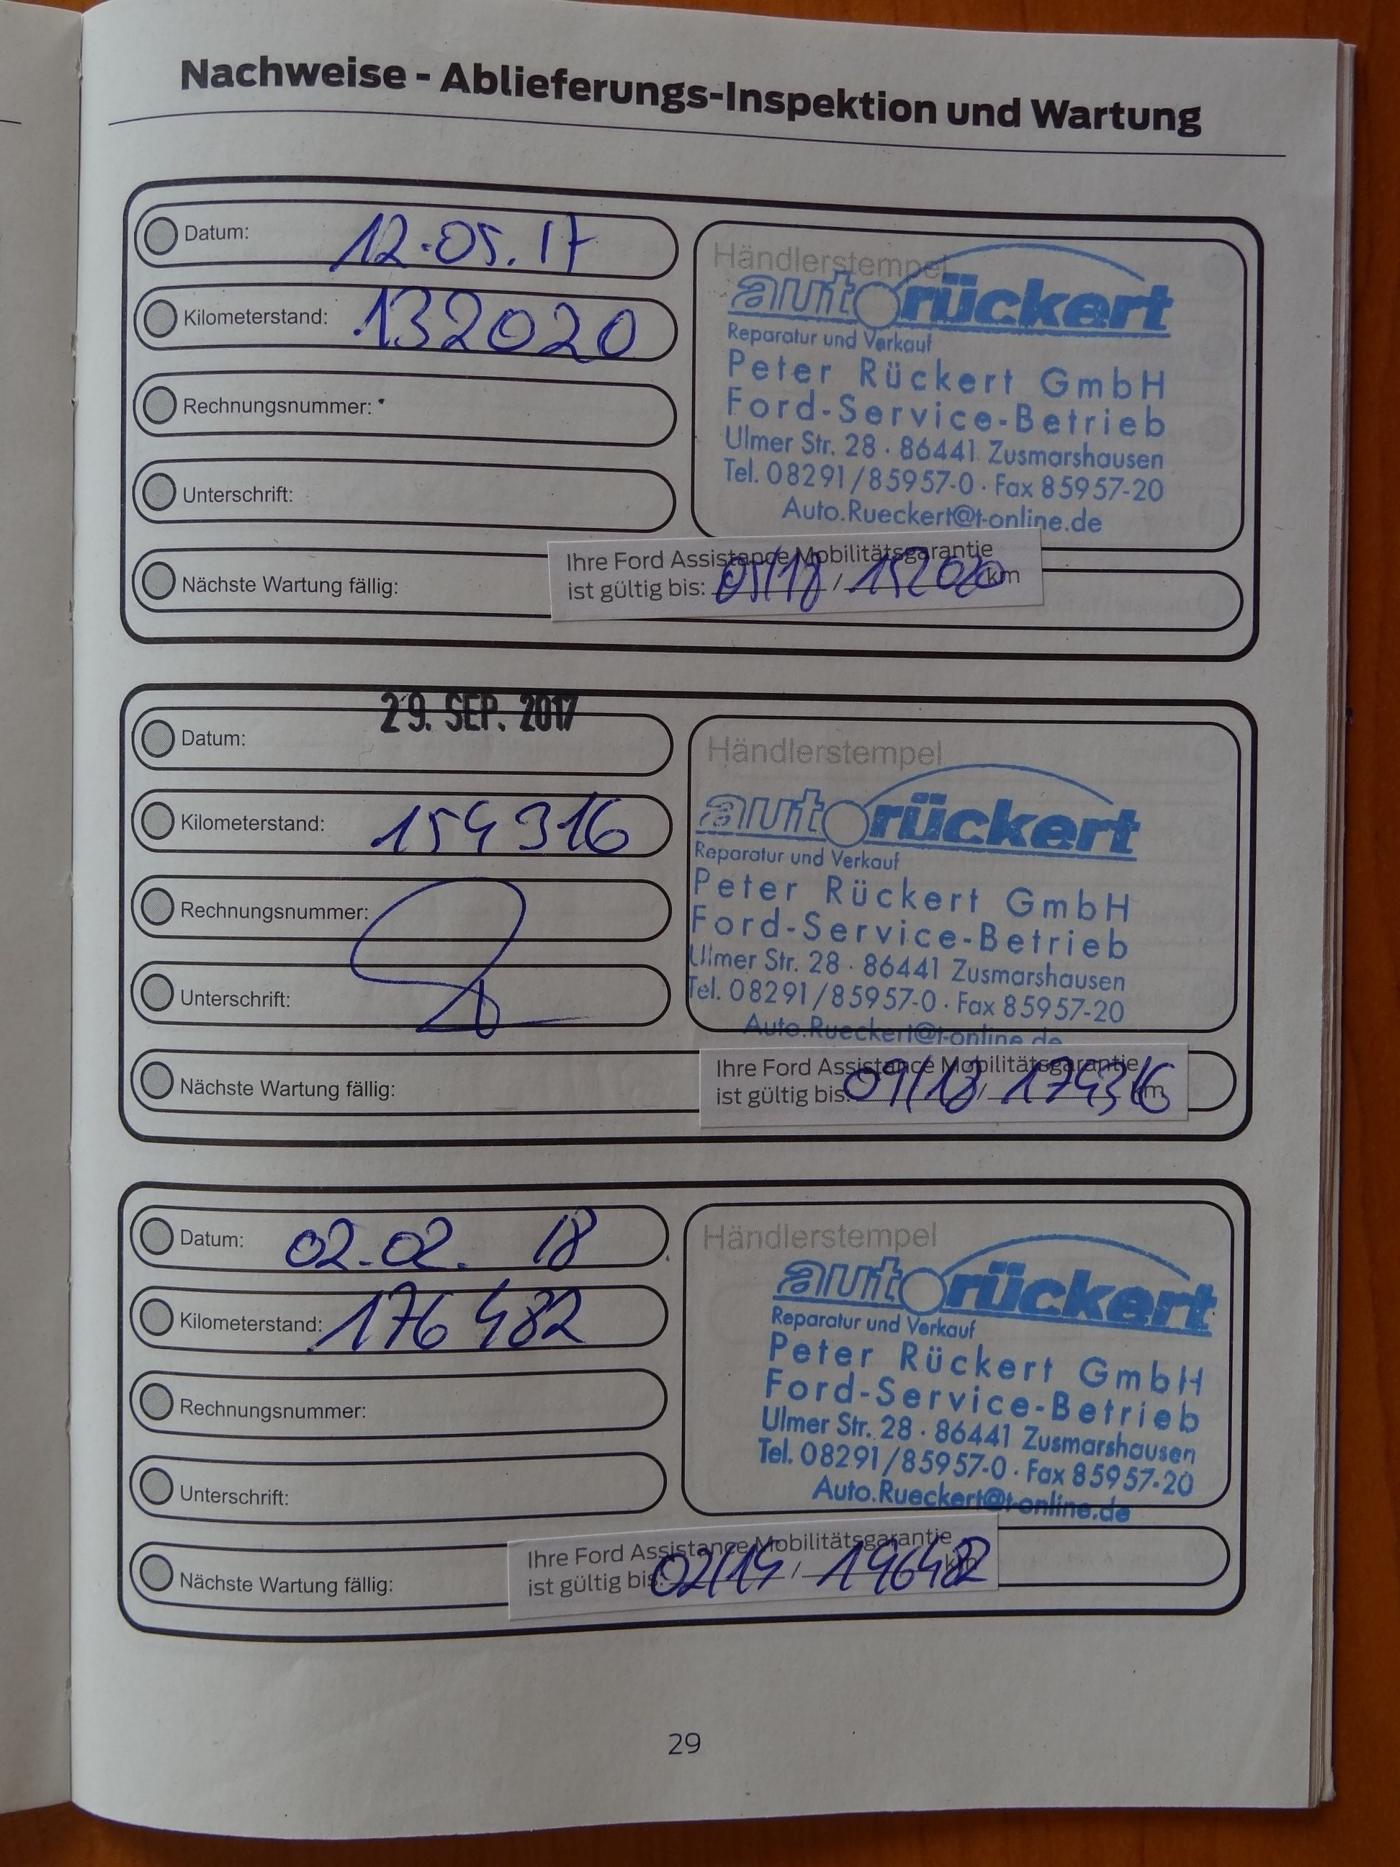 Nachweise - Ablieferungs-Inspektion und Wartung
Datum: 12.05.17
Kilometerstand: 132020
Rechnungsnummer:
Unterschrift:
Nächste Wartung fällig:
Händlerstempel
autorückert
Reparatur und Verkauf
Peter Rückert GmbH
Ford-Service-Betrieb
Ulmer Str. 28 · 86441 Zusmarshausen
Tel. 08291/85957-0 · Fax 85957-20
Auto.Rueckert@t-online.de
Ihre Ford Assistance Mobilitätsgarantie
ist gültig bis: 05/18 / 152020 km
Datum: 29. SEP. 2017
Kilometerstand: 154316
Rechnungsnummer:
Unterschrift:
Nächste Wartung fällig:
Händlerstempel
autorückert
Reparatur und Verkauf
Peter Rückert GmbH
Ford-Service-Betrieb
Ulmer Str. 28 · 86441 Zusmarshausen
Tel. 08291/85957-0 · Fax 85957-20
Auto.Rueckert@t-online.de
Ihre Ford Assistance Mobilitätsgarantie
ist gültig bis: 09/18 / 174316 km
Datum: 02.02. 18
Kilometerstand: 176482
Rechnungsnummer:
Unterschrift:
Nächste Wartung fällig:
Händlerstempel
autorückert
Reparatur und Verkauf
Peter Rückert GmbH
Ford-Service-Betrieb
Ulmer Str. 28 · 86441 Zusmarshausen
Tel. 08291/85957-0 · Fax 85957-20
Auto.Rueckert@t-online.de
Ihre Ford Assistance Mobilitätsgarantie
ist gültig bis: 02/19 / 196482 km
29